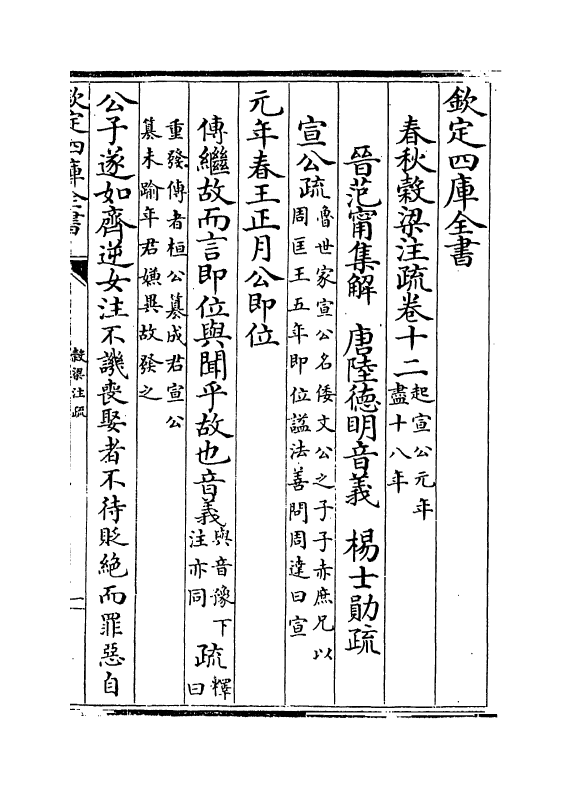 欽定四庫全書
春秋穀梁注疏卷十二起宣公元年
盡十八年
晉范甯集解　唐陸德明音義　楊士勛疏
宣公疏魯世家宣公名倭文公之子子赤庶兄以
周匡王五年即位諡法善問周達曰宣
元年春王正月公即位
傳繼故而言即位與聞乎故也音義與音豫下
注亦同疏釋
曰
重發傳者桓公篡成君宣公
篡未踰年君嫌異故發之
公子遂如齊逆女注不譏喪娶者不待貶絶而罪惡自
欽定四庫全書
穀梁注疏
一